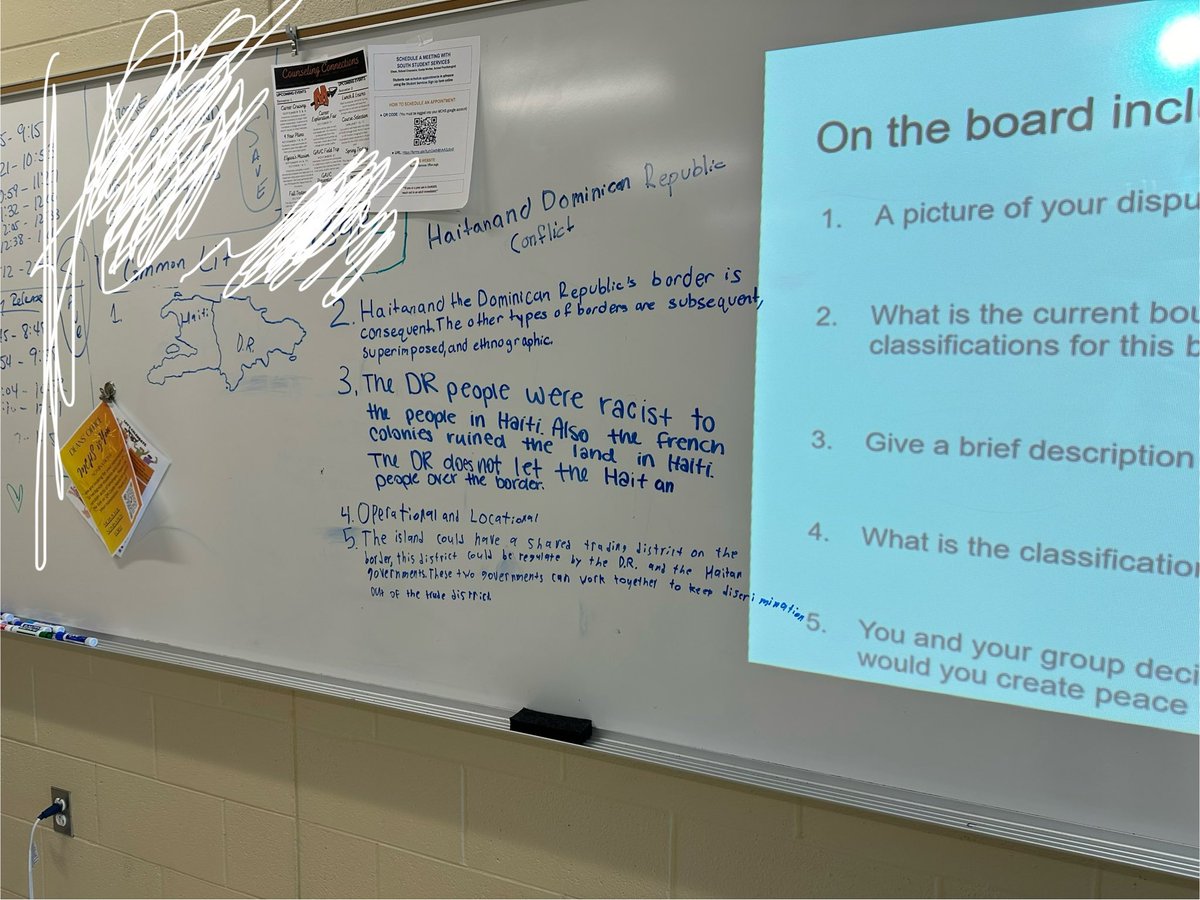 5 - 9:15
SAVE
Counseling Connections
UPCOMING EVENTS
Career Cruising
4 Year Plans
Career Exploration Fair
GAVC Field Trip
Lunch & Learns
Course Selection
SCHEDULE A MEETING WITH
SOUTH STUDENT SERVICES
HOW TO SCHEDULE AN APPOINTMENT
Haitanand Dominican Republic
Conflict
Common Lit
1.
Haiti
D.R.
2. Haitanand the Dominican Republic's border is
consequent. The other types of borders are subsequent,
superimposed, and ethnographic.
3. The DR people were racist to
the people in Haiti. Also the french
colonies ruined the land in Haiti.
The DR does not let the Haitan
people over the border.
4. Operational and Locational
5. The island could have a shared trading district on the
border, this district could be regulate by the D.R. and the Haitan
governments. These two governments can work together to keep discrimination
out of the trade district
DEAN'S OFFICE
On the board incl
1. A picture of your dispu
2. What is the current bou
classifications for this b
3. Give a brief description
4. What is the classification
5. You and your group deci
would you create peace